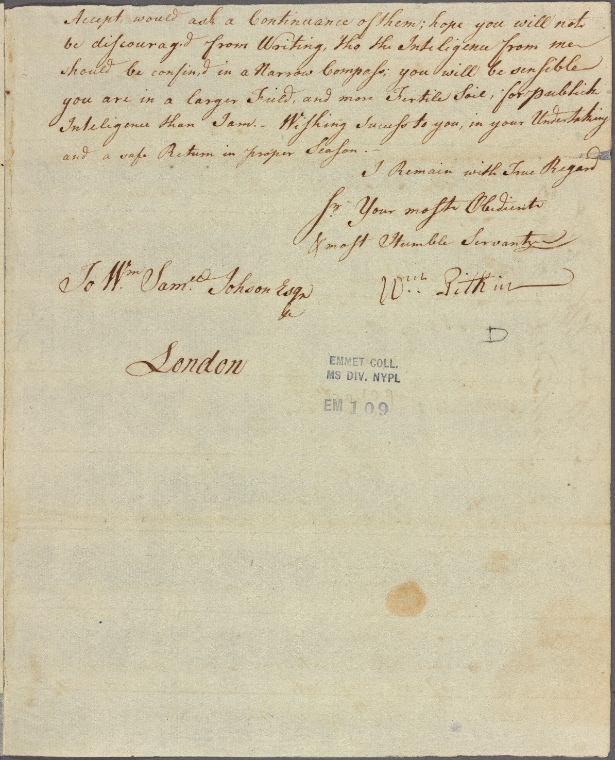 Accept would ask a Continuance of them; hope you will not
be discourag'd from Writing, tho the Inteligence from me
should be confin'd in a Narrow Compass; you will be sensible
you are in a larger Field, and more Fertile Soil, for publick
Inteligence than I am.- Wishing Sucess to you, in your Undertaking
and a safe Return in proper Season.-
I Remain with True Regard
Sr. Your most Obedient
& most Humble Servant
To Wm Saml. Johson Esqr
Wm Pitkin
D
London
EMMET COLL.
MS DIV. NYPL
EM 109